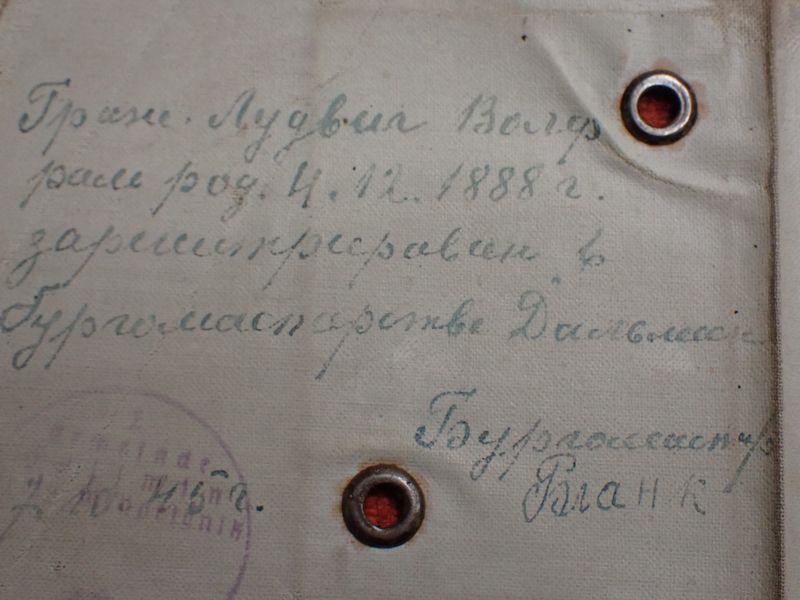 Граж. Лудвиг Волф
рам род. 4.12.1888 г.
зарегитрирован в
бургомастарстве Дальман
Бургомастр
Бланк
7.10.45 г.
Gemeinde